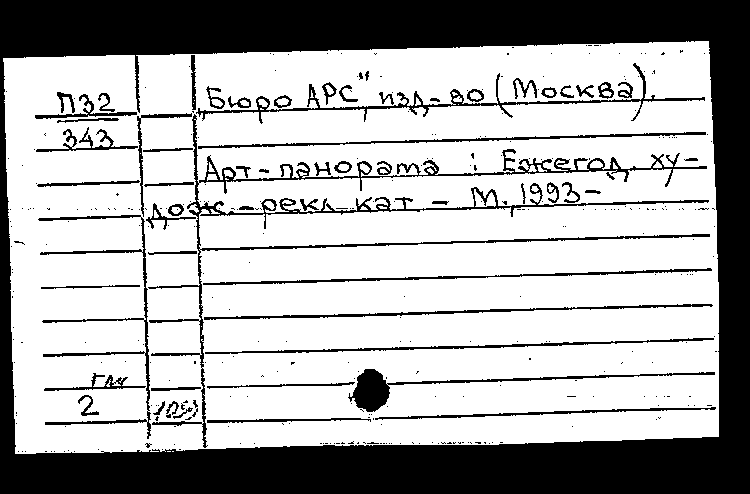 П32
343
„Бюро АРС", изд-во (Москва).
Арт-панората : Ежегод. ху-
дож.-рекл. кат - М., 1993-
глч
2